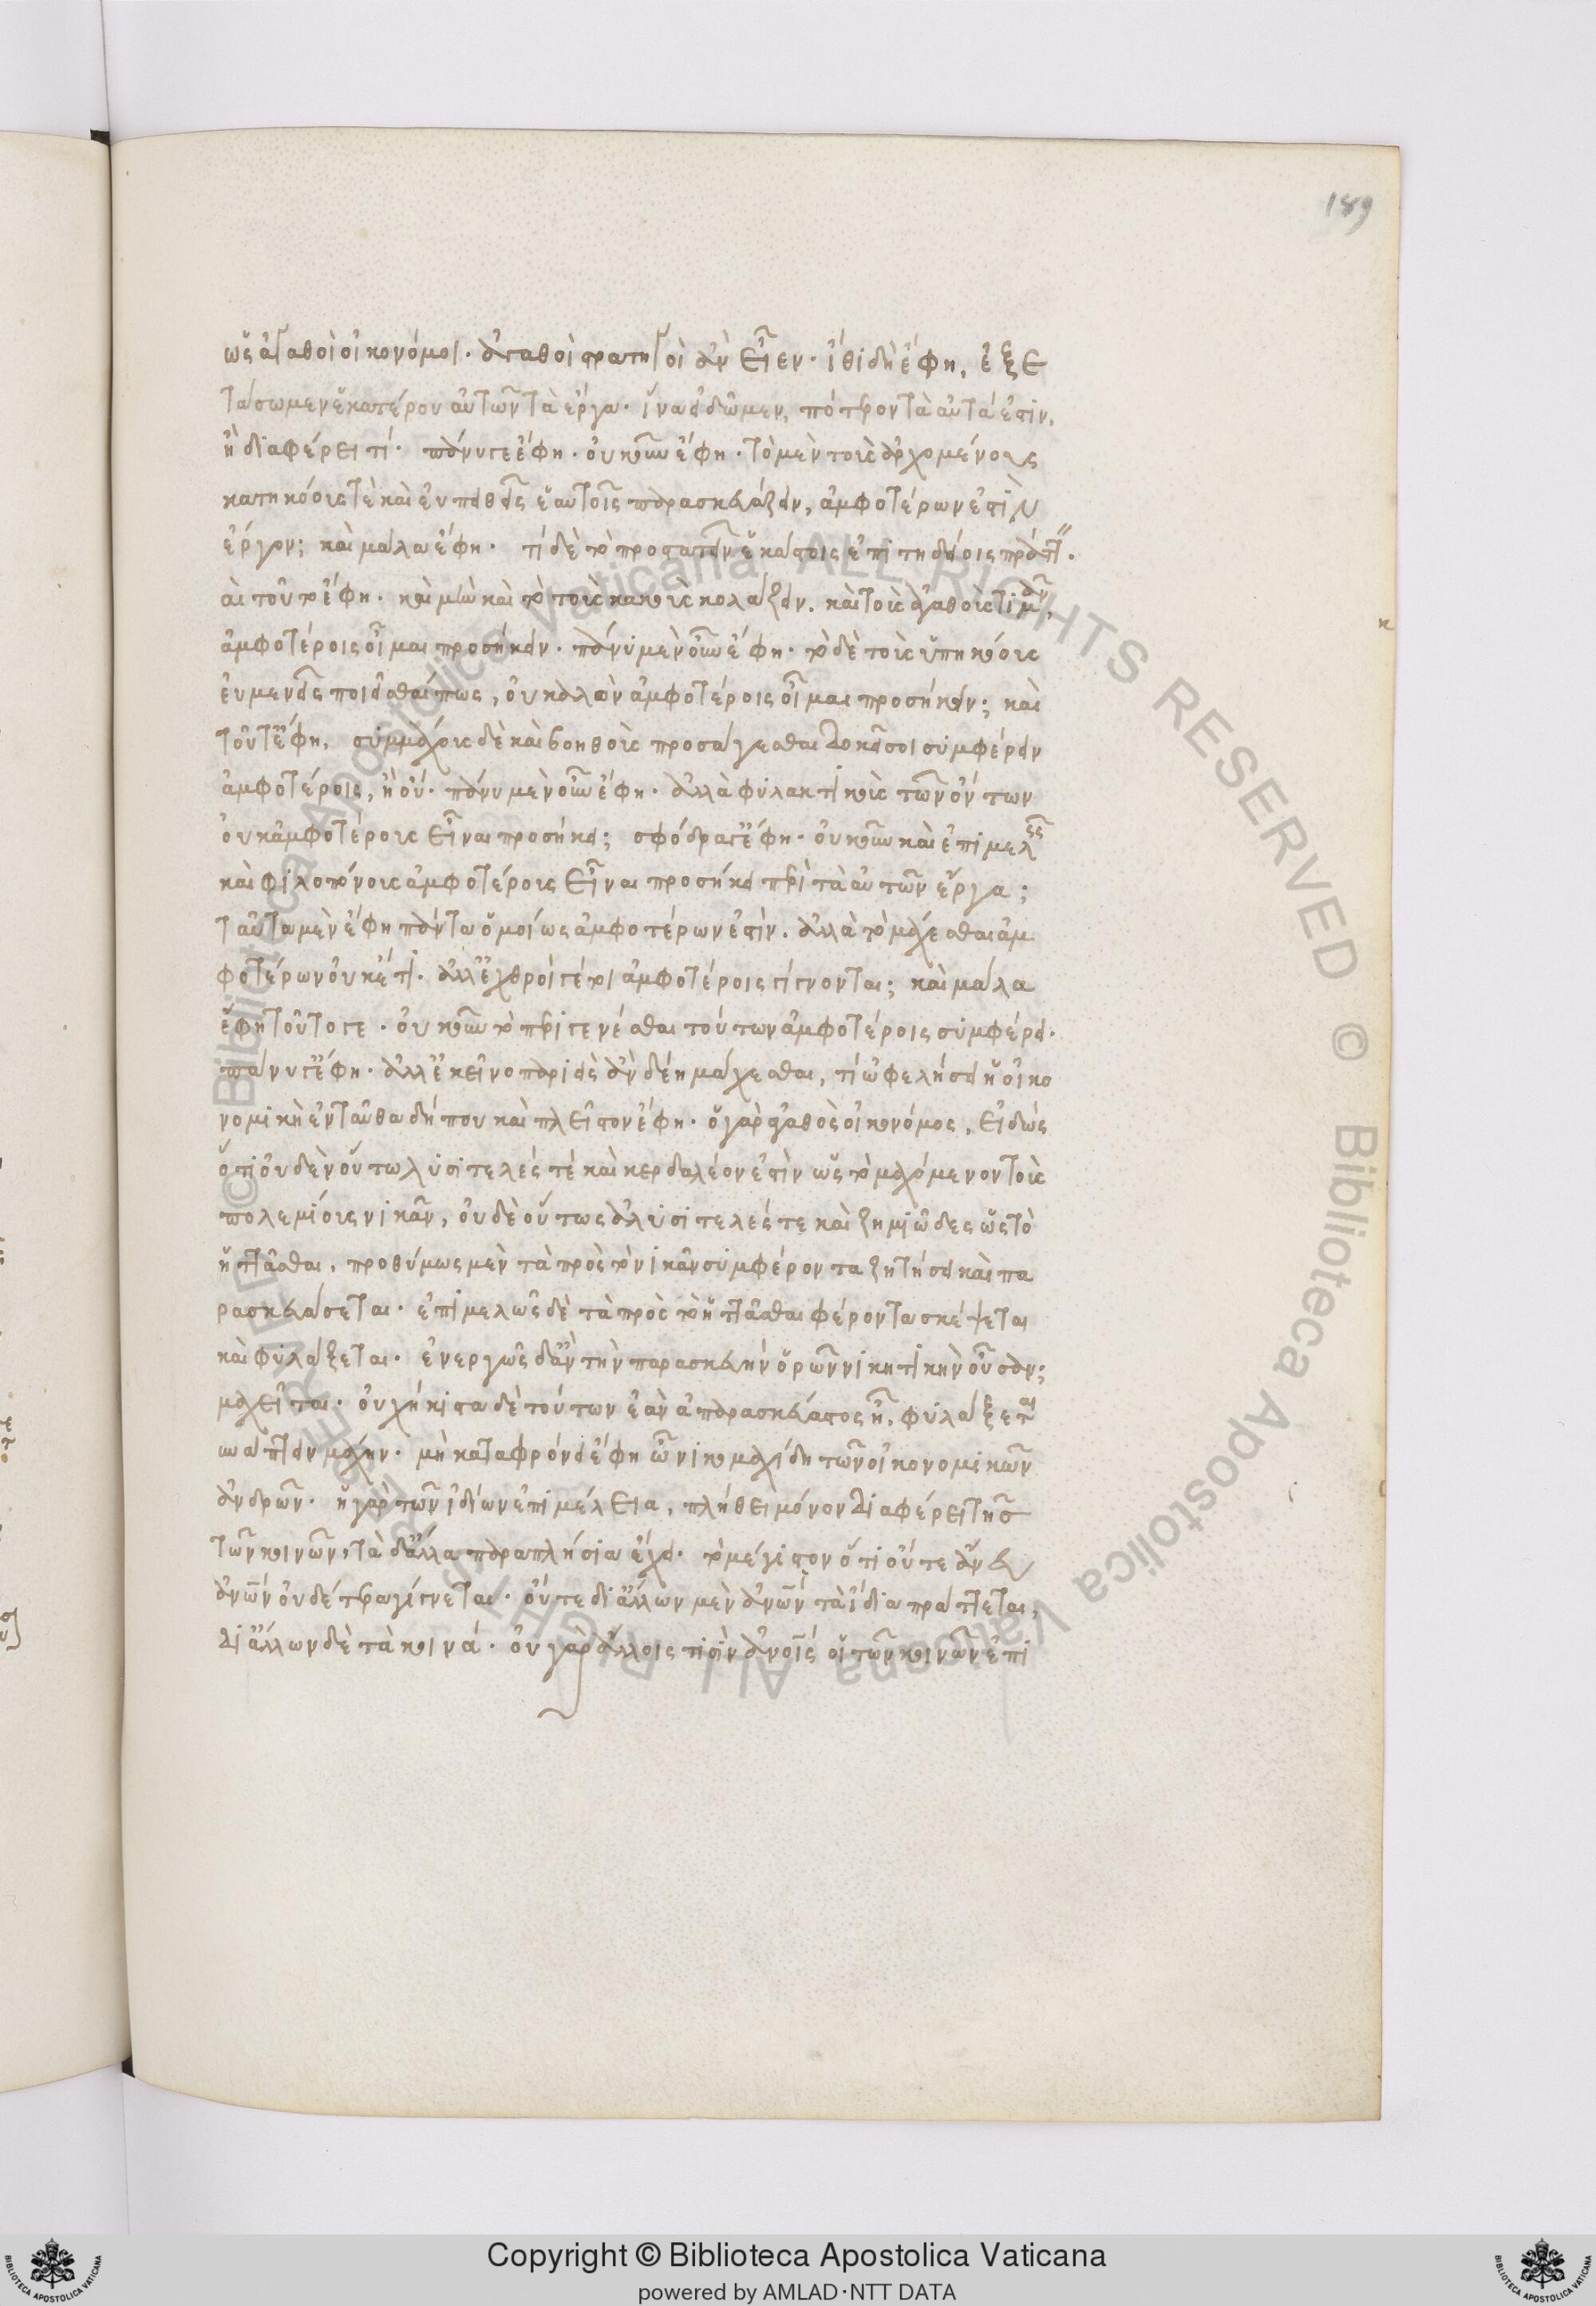 189
ὡς ἀγαθοὶ οἰκονόμοι. ἀγαθοὶ στρατηγοὶ ἂν εἶεν. ἴθι δὴ ἔφη, ἐξε
τάσωμεν ἑκατέρου αὐτῶν τὰ ἔργα. ἵνα εἰδῶμεν, πότερον τὰ αὐτά ἐστιν,
ἢ διαφέρει τί. πάνυ γε ἔφη. οὐκοῦν ἔφη. τὸ μὲν τοὺς ἀρχομένους
κατηκόους τὲ καὶ εὐπειθεῖς ἑαυτοῖς παρασκευάζειν, ἀμφοτέρων ἐστὶν
ἔργον; καὶ μάλα ἔφη. τί δὲ τὸ προστατεῖν ἑκάστοις ἐπιτηδείοις πράττ.
αι τοῦτο ἔφη. καὶ μὴν καὶ τὸ τοὺς κακοὺς κολάζειν. καὶ τοὺς ἀγαθοὺς τιμᾶν,
ἀμφοτέροις οἶμαι προσήκειν. πάνυ μὲν οὖν ἔφη. τὸ δὲ τοὺς ὑπηκόους
εὐμενεῖς ποιεῖσθαί πως, οὐ καλὸν ἀμφοτέροις οἶμαι προσήκειν; καὶ
τοῦτ' ἔφη. συμμάχους δὲ καὶ βοηθοὺς προσάγεσθαι δοκεῖ σοι συμφέρειν
ἀμφοτέροις, ἢ οὔ. πάνυ μὲν οὖν ἔφη. ἀλλὰ φυλακτικοὺς τῶν ὄντων
οὐκ ἀμφοτέρους εἶναι προσήκει; σφόδρα γ' ἔφη. οὐκοῦν καὶ ἐπιμελεῖς
καὶ φιλοπόνους ἀμφοτέροις εἶναι προσήκει περὶ τὰ αὑτῶν ἔργα;
ταῦτα μὲν ἔφη πάντα ὁμοίως ἀμφοτέρων ἐστίν. ἀλλὰ τὸ μάχεσθαι ἀμ
φοτέρων οὐκέτι. ἀλλ' ἐχθροί γέ τοι ἀμφοτέροις γίγνονται; καὶ μάλα
ἔφη τοῦτό γε. οὐκοῦν τὸ περιγενέσθαι τούτων ἀμφοτέροις συμφέρει.
πάνυ γ' ἔφη. ἀλλ' ἐκεῖνο παριεὶς ἂν δέῃ μάχεσθαι, τί ὠφελήσει ἡ οἰκο
νομικὴ ἐνταῦθα δήπου καὶ πλεῖστον ἔφη. ὁ γὰρ ἀγαθὸς οἰκονόμος, εἰδὼς
ὅτι οὐδὲν οὕτω λυσιτελές τέ καὶ κερδαλέον ἐστὶν ὡς τὸ μαχόμενον τοὺς
πολεμίους νικᾶν, οὐδὲ οὕτως ἀλυσιτελές τε καὶ ζημιῶδες ὡς τὸ
ἡττᾶσθαι, προθύμως μὲν τὰ πρὸς τὸ νικᾶν συμφέροντα ζητήσει καὶ πα
ρασκευάσεται. ἐπιμελῶς δὲ τὰ πρὸς τὸ ἡττᾶσθαι φέροντα σκέψεται
καὶ φυλάξεται. ἐνεργῶς δ' ἂν τὴν παρασκευὴν ὁρῶν νικητικὴν οὖσαν;
μαχεῖται. οὐχ ἥκιστα δὲ τούτων ἐὰν ἀπαράσκευαστος ᾖ, φυλάξεται
συνάπτειν μάχην. μὴ καταφρόνει ἔφη ὦ νικομαχίδη τῶν οἰκονομικῶν
ἀνδρῶν. ἡ γὰρ τῶν ἰδίων ἐπιμέλεια, πλήθει μόνον διαφέρει τῆς
τῶν κοινῶν, τὰ δ' ἄλλα παραπλήσια ἔχει. τὸ μέγιστον ὅτι οὔτε ἄνευ
ἀνῶν οὐδετέρα γίγνεται. οὔτε δι' ἄλλων μὲν ἀνῶν τὰ ἴδια πράττεται,
δι' ἄλλων δὲ τὰ κοινά. οὐ γὰρ ἄλλοις τισὶν ἀνοις οἱ τῶν κοινῶν ἐπι
© Biblioteca Apostolica Vaticana ALL RIGHTS RESERVED
Copyright © Biblioteca Apostolica Vaticana
powered by AMLAD·NTT DATA